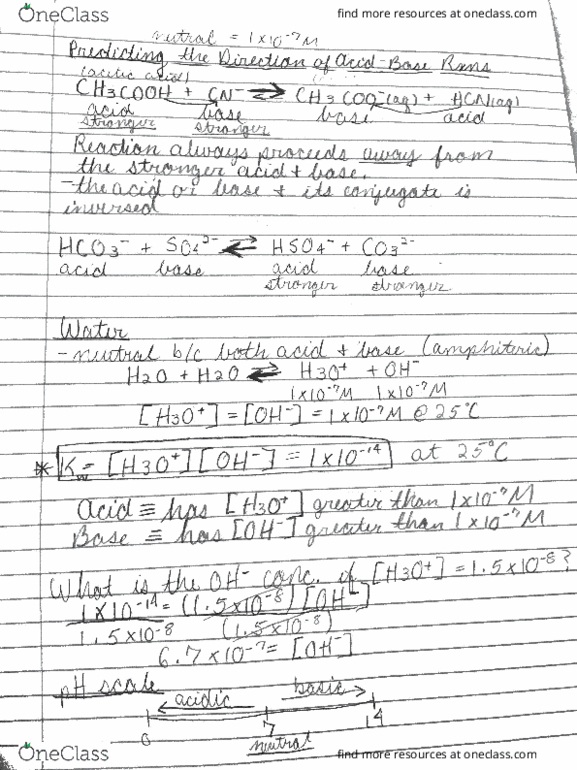 OneClass
find more resources at oneclass.com
neutral = 1x10⁻⁷M
Predicting the Direction of Acid-Base Rxns
(acetic acid)
CH3COOH + CN⁻ ⇌ CH3COO⁻(aq) + HCN(aq)
acid base base acid
stronger stronger
Reaction always proceeds away from
the stronger acid + base.
-the acid or base + its conjugate is
inversed
HCO3⁻ + SO4²⁻ ⇌ HSO4⁻ + CO3²⁻
acid base acid base
stronger stronger
Water
- neutral b/c both acid + base (amphiteric)
H2O + H2O ⇌ H3O⁺ + OH⁻
1x10⁻⁷M 1x10⁻⁷M
[H3O⁺] = [OH⁻] = 1x10⁻⁷M @ 25°C
* Kw = [H3O⁺][OH⁻] = 1x10⁻¹⁴ at 25°C
Acid ≡ has [H3O⁺] greater than 1x10⁻⁷M
Base ≡ has [OH⁻] greater than 1x10⁻⁷M
What is the OH⁻ conc. if [H3O⁺] = 1.5x10⁻⁸?
1x10⁻¹⁴ = (1.5x10⁻⁸)[OH⁻]
1.5x10⁻⁸ (1.5x10⁻⁸)
6.7x10⁻⁷ = [OH⁻]
pH scale
acidic basic
0 7 14
neutral
OneClass
find more resources at oneclass.com